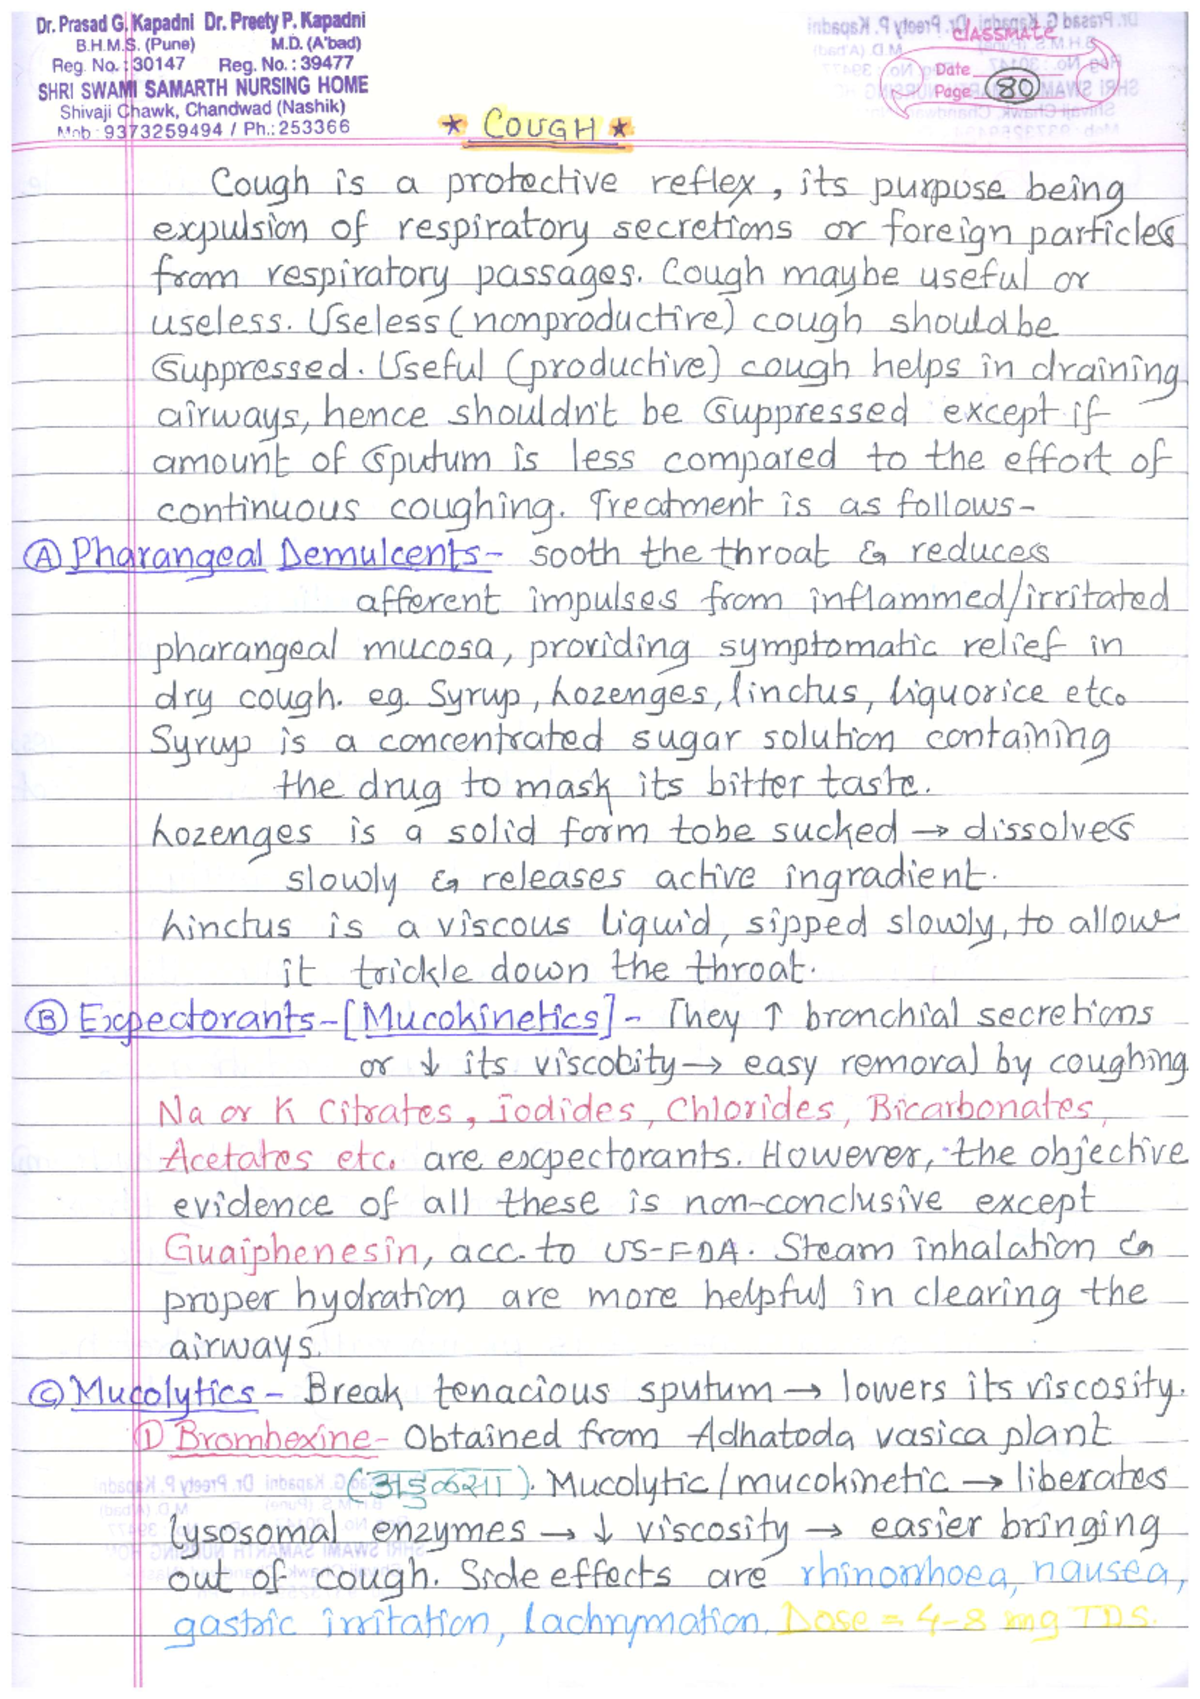 Dr. Prasad G. Kapadni Dr. Preety P. Kapadni
B.H.M.S. (Pune) M.D. (A'bad)
Reg. No. : 30147 Reg. No. : 39477
SHRI SWAMI SAMARTH NURSING HOME
Shivaji Chawk, Chandwad (Nashik)
Mob : 9373259494 / Ph.: 253366
classmate
Date
Page 80
* COUGH *
Cough is a protective reflex, its purpose being
expulsion of respiratory secretions or foreign particles
from respiratory passages. Cough maybe useful or
useless. Useless (nonproductive) cough should be
suppressed. Useful (productive) cough helps in draining
airways, hence shouldn't be suppressed except if
amount of sputum is less compared to the effort of
continuous coughing. Treatment is as follows-
(A) Pharangeal Demulcents- sooth the throat & reduces
afferent impulses from inflammed/irritated
pharangeal mucosa, providing symptomatic relief in
dry cough. eg. Syrup, Lozenges, linctus, liquorice etc.
Syrup is a concentrated sugar solution containing
the drug to mask its bitter taste.
Lozenges is a solid form tobe sucked → dissolves
slowly & releases active ingradient.
Linctus is a viscous liquid, sipped slowly, to allow
it trickle down the throat.
(B) Expectorants-[Mucokinetics]- They ↑ bronchial secretions
or ↓ its viscocity → easy removal by coughing.
Na or K Citrates, Iodides, Chlorides, Bicarbonates,
Acetates etc. are expectorants. However, the objective
evidence of all these is non-conclusive except
Guaiphenesin, acc. to US-FDA. Steam inhalation &
proper hydration are more helpful in clearing the
airways.
(C) Mucolytics - Break tenacious sputum → lowers its viscosity.
1) Bromhexine- Obtained from Adhatoda vasica plant
(अडुळसा). Mucolytic/mucokinetic → liberates
lysosomal enzymes → ↓ viscosity → easier bringing
out of cough. Side effects are rhinorrhoea, nausea,
gastric irritation, lachrymation. Dose = 4-8 mg TDS.